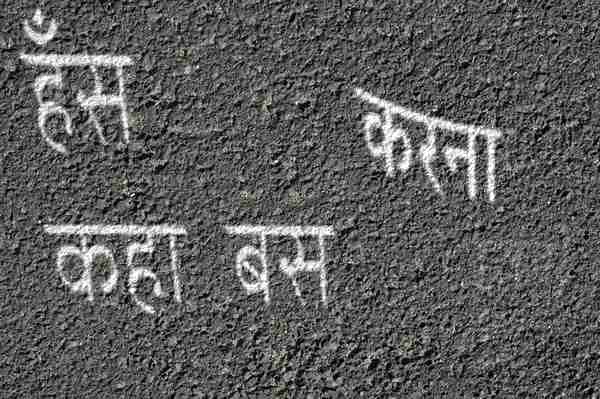 हँस करना
कहा बस